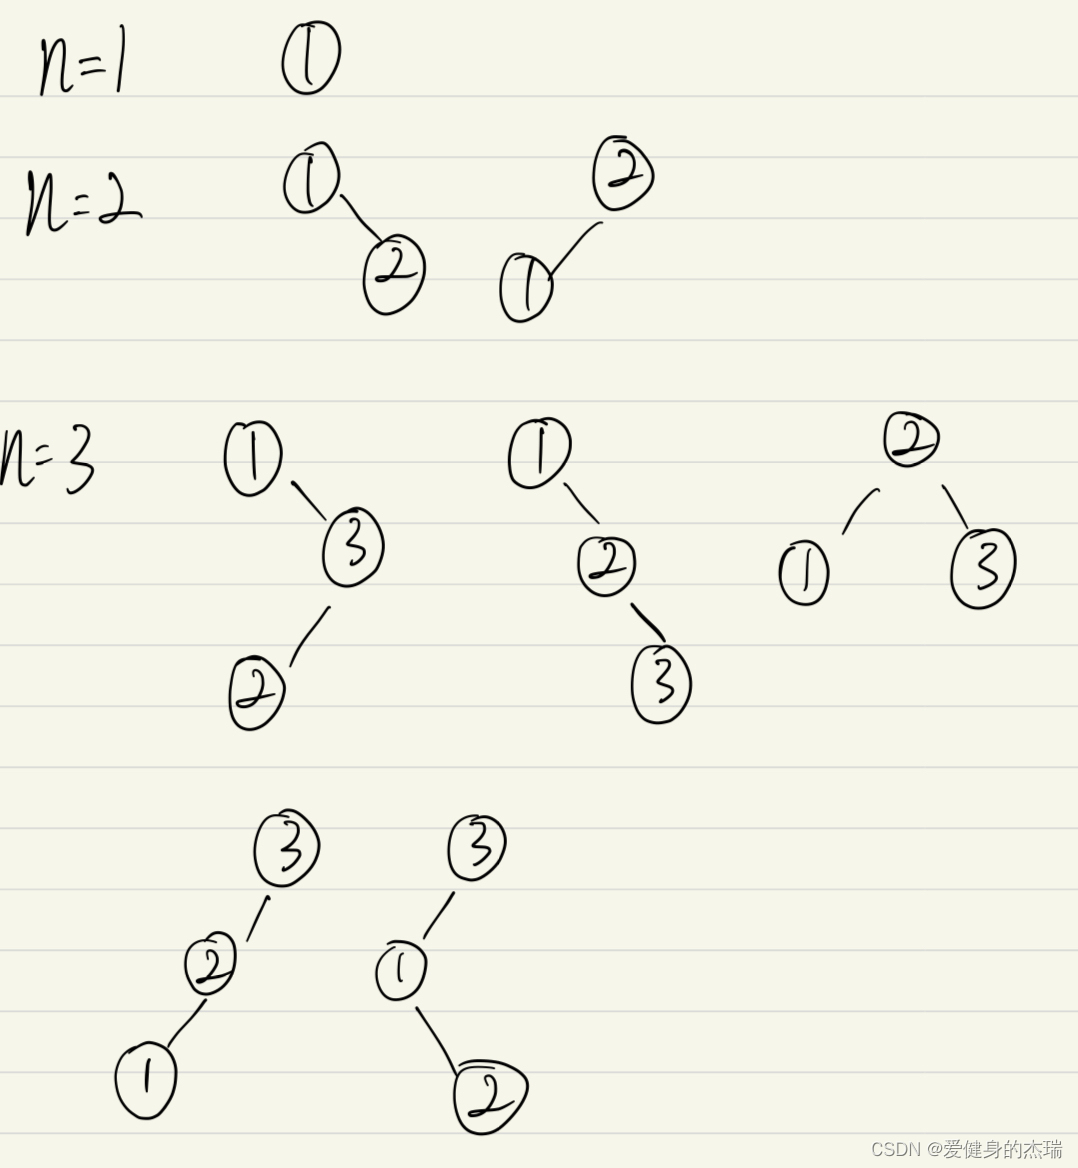 n=1 1
n=2 1 2
2 1
n=3 1 1 2
3 2 1 3
2 3
3 3
2 1
1 2
CSDN @爱健身的杰瑞